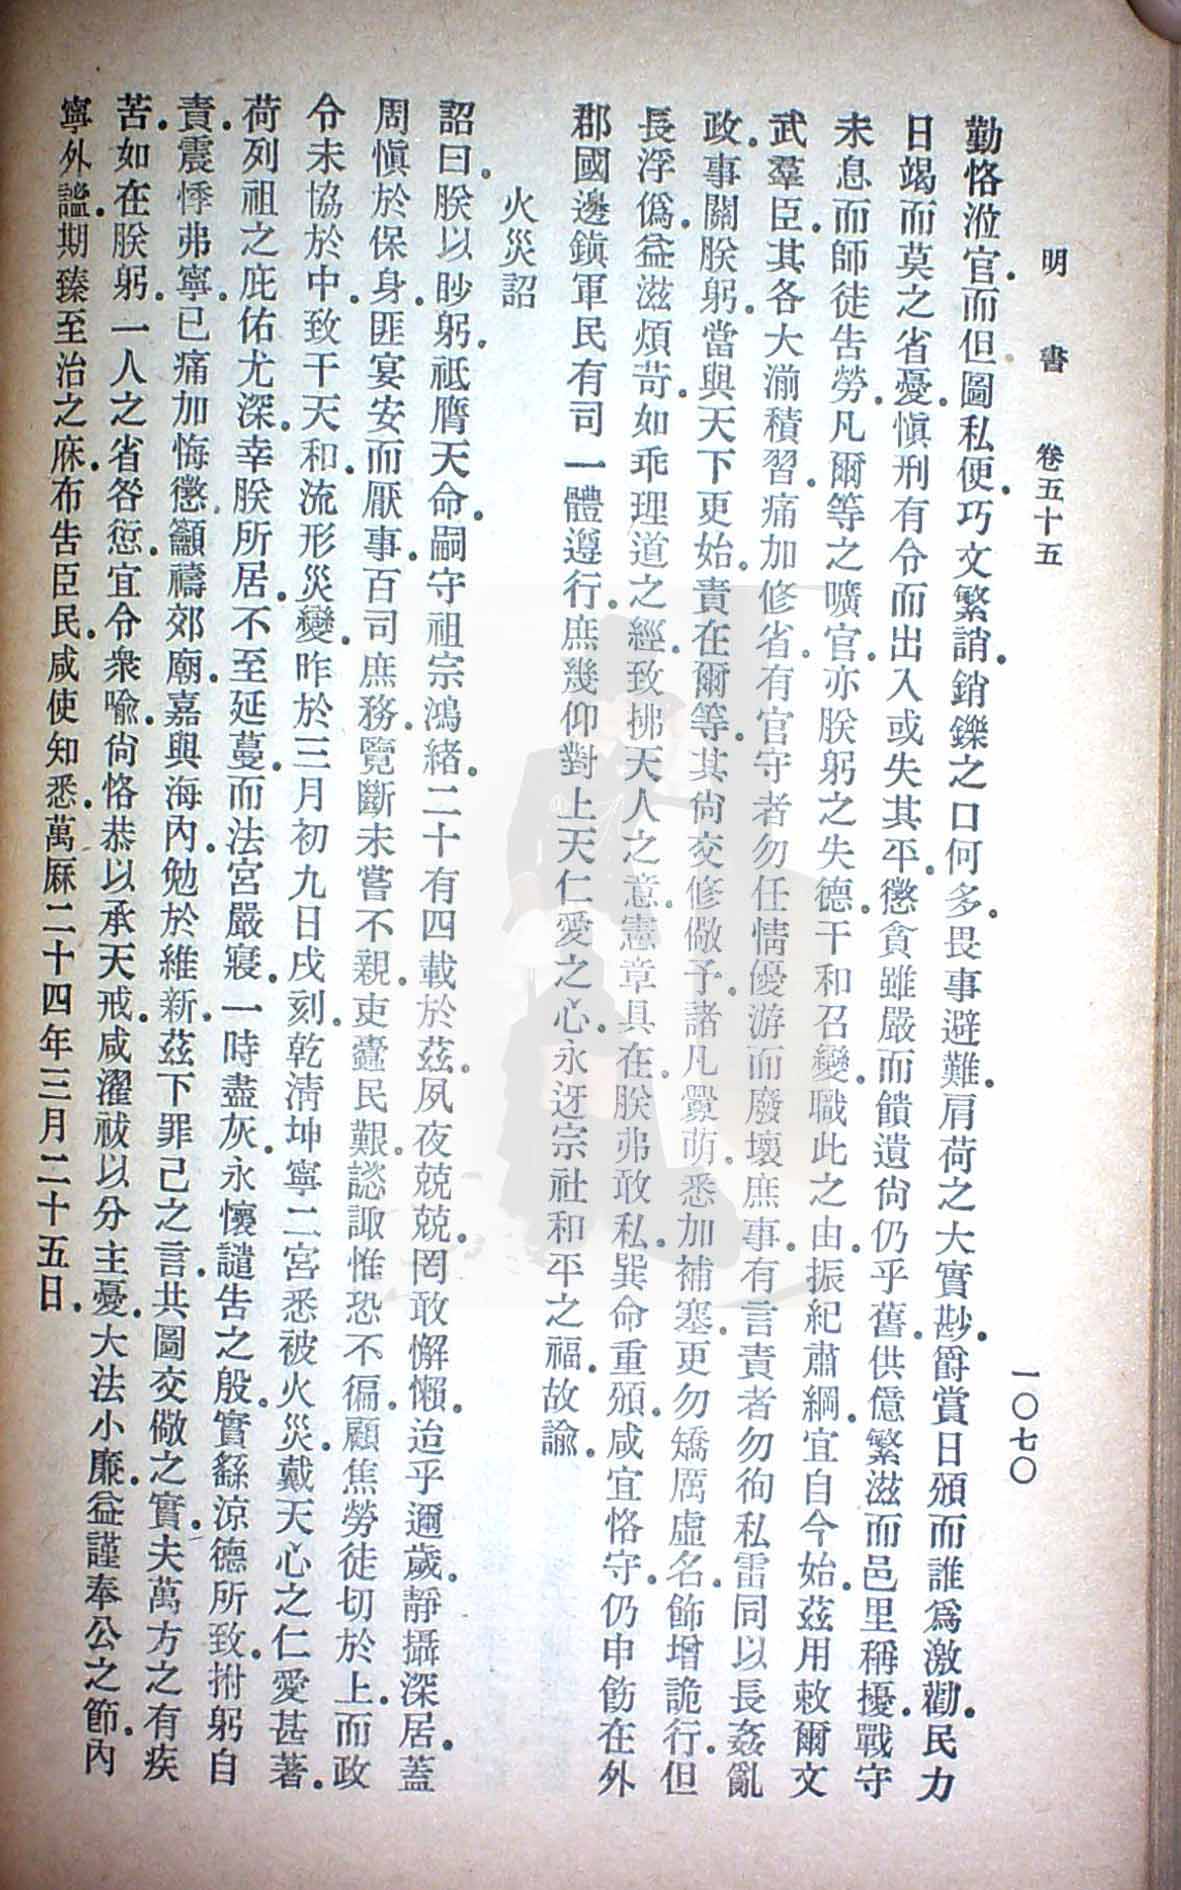 明書 卷五十五 一〇七〇
勤恪涖官．而但圖私便．巧文繁誚．銷鑠之口何多．畏事避難．肩荷之大實尠．爵賞日頒而誰爲激勸．民力
日竭而莫之省憂．愼刑有令而出入或失其平．懲貪雖嚴而饋遺尙仍乎舊．供億繁滋而邑里稱擾．戰守
未息而師徒告勞．凡爾等之曠官．亦朕躬之失德．干和召變．職此之由．振紀肅綱．宜自今始．茲用敕爾文
武羣臣．其各大湔積習．痛加修省．有官守者勿任情優游而廢壞庶事．有言責者勿徇私雷同以長姦亂
政．事關朕躬．當與天下更始．責在爾等．其尙交修儆予．諸凡釁萌．悉加補塞．更勿矯厲虛名．飾增詭行．但
長浮僞．益滋煩苛．如乖理道之經．致拂天人之意．憲章具在．朕弗敢私．巽命重頒．咸宜恪守．仍申飭在外
郡國邊鎭軍民有司一體遵行．庶幾仰對上天仁愛之心．永迓宗社和平之福．故諭．
火災詔
詔曰．朕以眇躬．祗膺天命．嗣守祖宗鴻緒．二十有四載於茲．夙夜兢兢．罔敢懈懶．迨乎邇歲．靜攝深居．蓋
周愼於保身．匪宴安而厭事．百司庶務．覽斷未嘗不親．吏蠹民艱．諮諏惟恐不徧．顧焦勞徒切於上．而政
令未協於中．致干天和．流形災變．昨於三月初九日戌刻．乾淸坤寧二宮悉被火災．戴天心之仁愛甚著．
荷列祖之庇佑尤深．幸朕所居．不至延蔓．而法宮嚴寢．一時盡灰．永懷譴告之殷．實繇涼德所致．拊躬自
責．震悸弗寧．已痛加悔懲．籲禱郊廟．嘉與海內．勉於維新．茲下罪己之言．共圖交儆之實．夫萬方之有疾
苦．如在朕躬．一人之省咎愆．宜令衆喩．尙恪恭以承天戒．咸濯祓以分主憂．大法小廉．益謹奉公之節．內
寧外謐．期臻至治之庥．布告臣民．咸使知悉．萬厤二十四年三月二十五日．